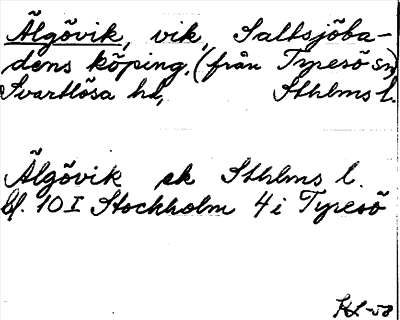 Älgövik, vik, Saltsjöba-
dens köping. (från Tyresö sn)
Svartlösa hd, Sthlms l.
Älgövik ek Sthlms l.
bl. 10 I Stockholm 4 i Tyresö
KL-58